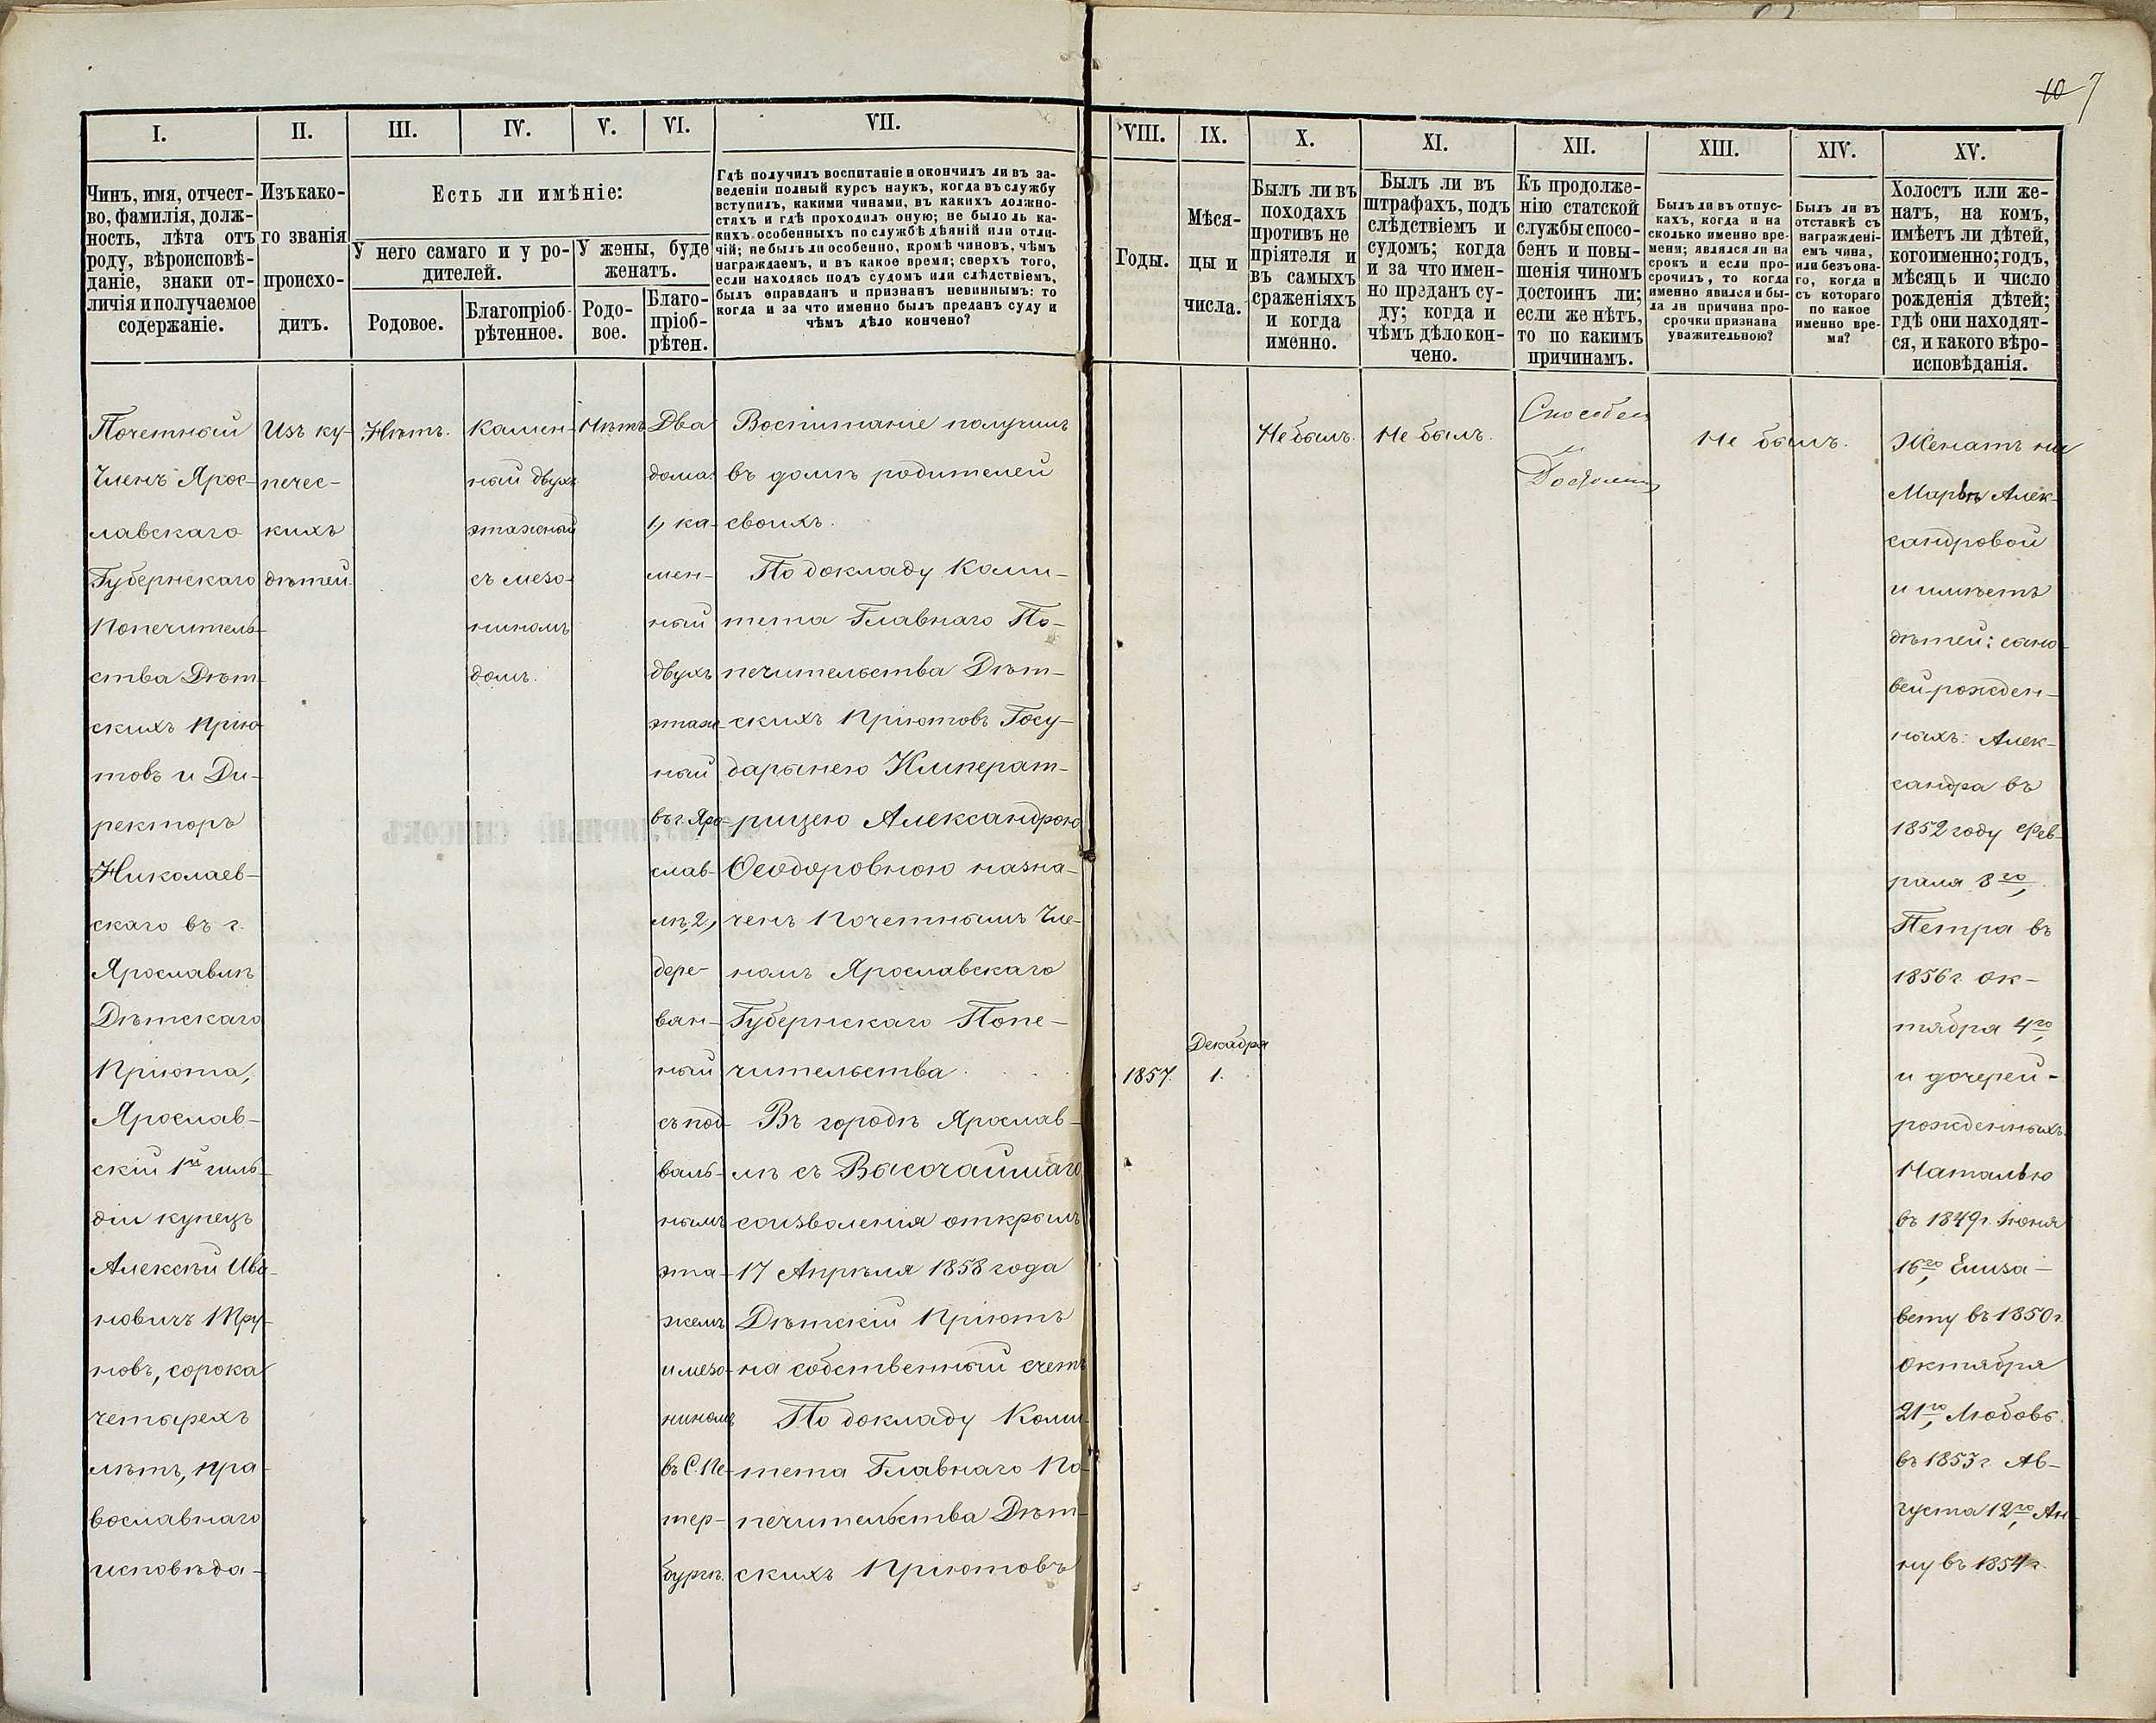 10 7
I.
II.
III.
IV.
V.
VI.
VII.
VIII.
IX.
X.
XI.
XII.
XIII.
XIV.
XV.
Чинъ, имя, отчест-
во, фамилія, долж-
ность, лѣта отъ
роду, вѣроисповѣ-
даніе, знаки от-
личія и получаемое
содержаніе.
Изъ како-
го званія
происхо-
дитъ.
Есть ли имѣніе:
У него самаго и у ро-
дителей.
У жены, буде
женатъ.
Родовое.
Благопріоб-
рѣтенное.
Родо-
вое.
Благо-
пріоб-
рѣтен.
Гдѣ получилъ воспитаніе и окончилъ ли въ за-
веденіи полный курсъ наукъ, когда въ службу
вступилъ, какими чинами, въ какихъ должно-
стяхъ и гдѣ проходилъ оную; не было ль ка-
кихъ особенныхъ по службѣ дѣяній или отли-
чій; не былъ ли особенно, кромѣ чиновъ, чѣмъ
награждаемъ, и въ какое время; сверхъ того,
если находясь подъ судомъ или слѣдствіемъ,
былъ оправданъ и признанъ невиннымъ: то
когда и за что именно былъ преданъ суду и
чѣмъ дѣло кончено?
Годы.
Мѣся-
цы и
числа.
Былъ ли въ
походахъ
противъ не
пріятеля и
въ самыхъ
сраженіяхъ
и когда
именно.
Былъ ли въ
штрафахъ, подъ
слѣдствіемъ и
судомъ; когда
и за что имен-
но преданъ су-
ду; когда и
чѣмъ дѣло кон-
чено.
Къ продолже-
нію статской
службы спосо-
бенъ и повы-
шенія чиномъ
достоинъ ли;
если же нѣтъ,
то по какимъ
причинамъ.
Былъ ли въ отпус-
кахъ, когда и на
сколько именно вре-
мени; являлся ли на
срокъ и если про-
срочилъ, то когда
именно явился и бы-
ла ли причина про-
срочки признана
уважительною?
Былъ ли въ
отставкѣ съ
награждені-
емъ чина,
или безъ она-
го, когда и
съ котораго
по какое
именно вре-
мя?
Холостъ или же-
натъ, на комъ,
имѣетъ ли дѣтей,
кого именно; годъ,
мѣсяцъ и число
рожденія дѣтей;
гдѣ они находят-
ся, и какого вѣро-
исповѣданія.
Почетный
Членъ Ярос-
лавскаго
Губернскаго
Попечитель-
ства Дѣт-
скихъ Прію-
товъ и Ди-
ректоръ
Николаев-
скаго въ г.
Ярославлѣ
Дѣтскаго
Пріюта,
Ярослав-
скій 1й гиль-
діи купецъ
Алексѣй Ива-
новичъ Тру-
новъ, сорока
четырехъ
лѣтъ, пра-
вославнаго
исповѣда-
Изъ ку-
печес-
кихъ
дѣтей.
Нѣтъ.
Камен-
ный двухъ
этажный
съ мезо-
ниномъ
домъ.
Нѣтъ
Два
дома:
1, ка-
мен-
ный
двухъ
этаж-
ный
въ г. Яро-
слав-
лѣ, 2,
дере-
вян-
ный
съ под-
валь-
нымъ
эта-
жемъ
и мезо-
ниномъ
въ С. Пе-
тер-
бургѣ.
Воспитаніе получилъ
въ домѣ родителей
своихъ.
По докладу Коми-
тета Главнаго По-
печительства Дѣт-
скихъ Пріютовъ Госу-
дарынею Императ-
рицею Александрою
Ѳеодоровною назна-
ченъ Почетнымъ Чле-
номъ Ярославскаго
Губернскаго Попе-
чительства . . . .
Въ городѣ Ярослав-
лѣ съ Высочайшаго
соизволенія открылъ
17 Апрѣля 1858 года
Дѣтскій Пріютъ
на собственный счетъ
По докладу Коми-
тета Главнаго По-
печительства Дѣт-
скихъ Пріютовъ
1857.
Декабря
1.
Не былъ.
Не былъ.
Способен
и
Достоинъ
Не былъ.
Женатъ на
Марьѣ Алек-
сандровой
и имѣетъ
дѣтей: сыно-
вей-рожден-
ныхъ: Алек-
сандра въ
1852 году Фев-
раля 8го,
Петра въ
1856 г. Ок-
тября 4го,
и дочерей-
рожденныхъ:
Наталью
въ 1849 г. Іюня
16го, Елиза-
вету въ 1850 г.
Октября
21го, Любовь
въ 1853 г. Ав-
густа 12го, Ан-
ну въ 1854 г.